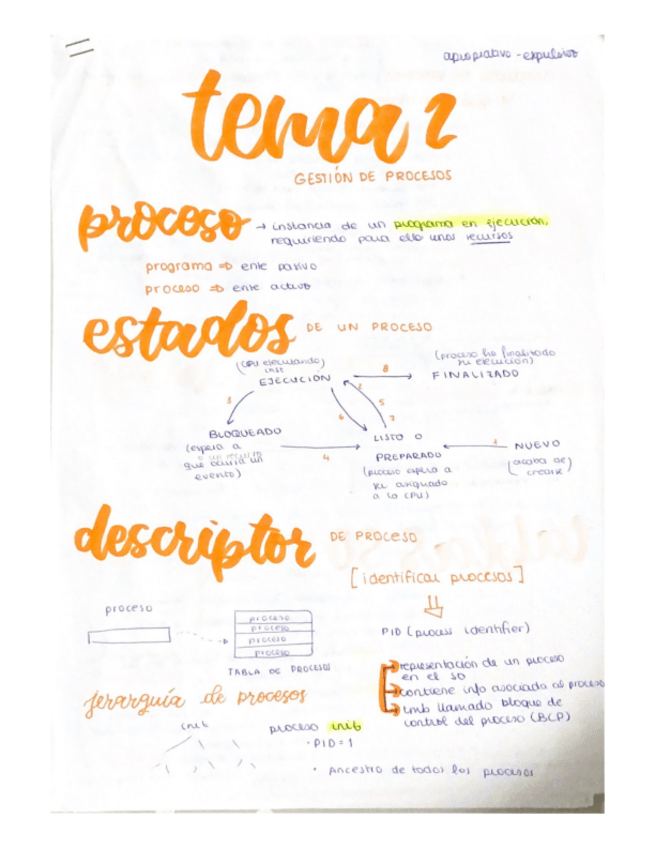 apropiativo - expulsivo
tema 2
GESTIÓN DE PROCESOS
proceso → instancia de un programa en ejecución,
requiriendo para ello unos recursos
programa ⇒ ente pasivo
proceso ⇒ ente activo
estados DE UN PROCESO
(CPU ejecutando)
EJECUCIÓN
8
(proceso ha finalizado
su ejecución)
FINALIZADO
3
6
5
BLOQUEADO
(espera a
que ocurra un
evento)
4
LISTO O
PREPARADO
(proceso espera a
ser asignado
a la CPU)
1
NUEVO
(acaba de
crearse)
descriptor DE PROCESO
[identificar procesos]
PID (process identifier)
proceso
proceso
proceso
proceso
proceso
TABLA DE PROCESOS
representación de un proceso
en el SO
contiene info asociada al proceso
tmb llamado bloque de
control del proceso (BCP)
jerarquía de procesos
init
proceso init
· PID = 1
· Ancestro de todos los procesos